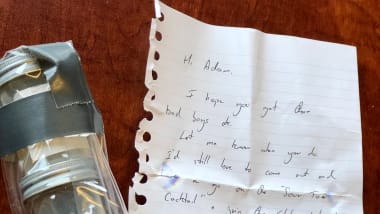 Hi Adam,
I hope you got the
bad boys ok.
Let me know when you do
I'd still love to come out and
go on the "Sour Toe
Cocktail"